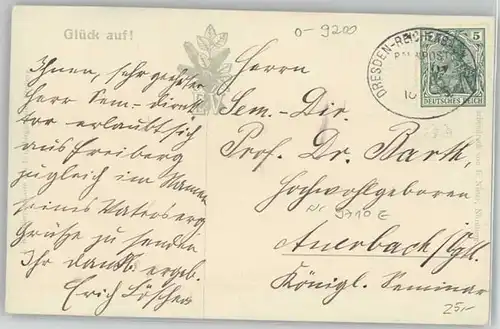 Glück auf!
Ihnen, sehr geehrter
Herr Sem.-Direk-
tor erlaubt sich
aus Freiberg
zugleich im Namen
seines Vaters
Grüße zu senden
Ihr dankb. ergeb.
Erich Löscher
0-9200
Herrn
Sem.-Dir.
Prof. Dr. Barth,
Hochwohlgeboren
Nr 9710 E
Auerbach/Vgtl.
Königl. Seminar
25,-
DRESDEN-REICHENB
BAHNPOST
5
DEUTSCHES REICH